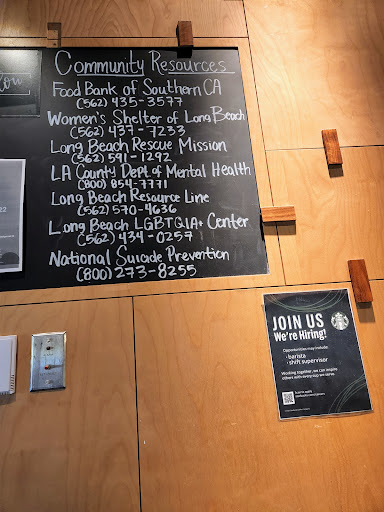 Community Resources
Food Bank of Southern CA
(562) 435-3577
Women's Shelter of Long Beach
(562) 437-7233
Long Beach Rescue Mission
(562) 591-1292
LA County Dept of Mental Health
(800) 854-7771
Long Beach Resource Line
(562) 570-4636
Long Beach LGBTQIA+ Center
(562) 434-0257
National Suicide Prevention
(800) 273-8255
JOIN US
We're Hiring!
Opportunities may include:
· barista
· shift supervisor
Working together, we can inspire
others with every cup we serve.